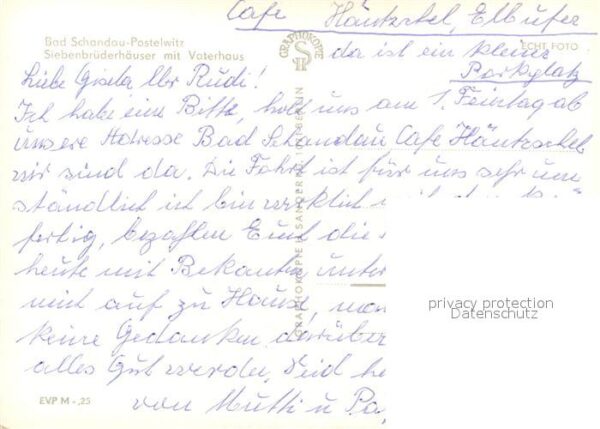 Cafe Häntzschel, Elbufer
da ist ein kleiner
Parkplatz
Bad Schandau-Postelwitz
Siebenbrüderhäuser mit Vaterhaus
ECHT FOTO
GRAPHOKOPIE
Liebe Gisela, lbr Rudi!
Ich habe eine Bitte, holt uns am 1. Feiertag ab
unsere Adresse Bad Schandau Cafe Häntzschel
wir sind da. Die Fahrt ist für uns sehr um
ständlich ich bin wirklich
fertig, bezahlen Euch die
heute mit Bekannten unter
mich auf zu Hause,
keine Gedanken darüber
alles Gut werden. Seid
von Mutti u Pa
GRAPHOKOPIE H. SANDER BERLIN
EVP M -,25
privacy protection
Datenschutz